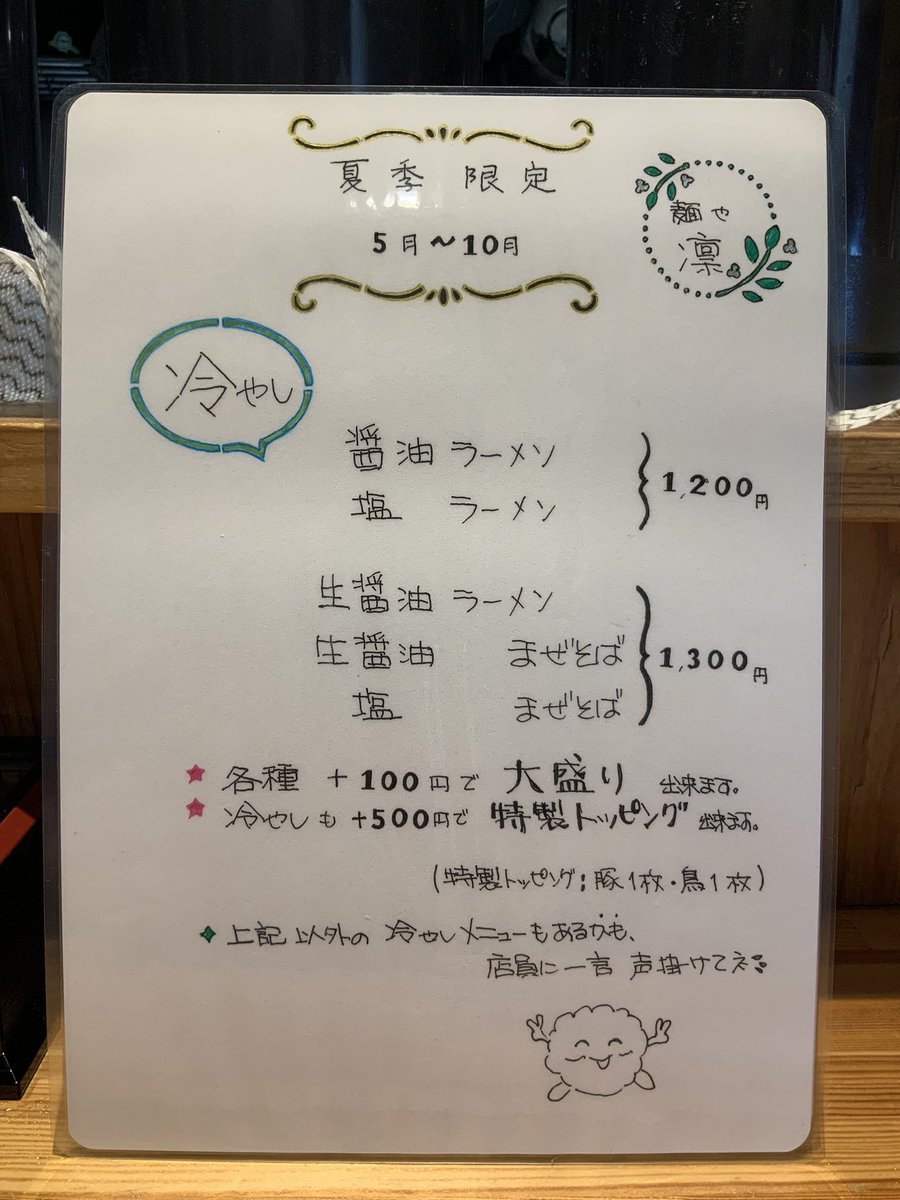 夏季 限定
5月〜10月
麺や
凛
冷やし
醤油 ラーメン
塩 ラーメン
1,200円
生醤油 ラーメン
生醤油 まぜそば
塩 まぜそば
1,300円
★ 各種 +100円で 大盛り 出来ます。
★ 冷やしも +500円で 特製トッピング 出来ます。
(特製トッピング; 豚1枚・鳥1枚)
上記以外の 冷やしメニューもあるかも、
店員に一言 声掛けてネ